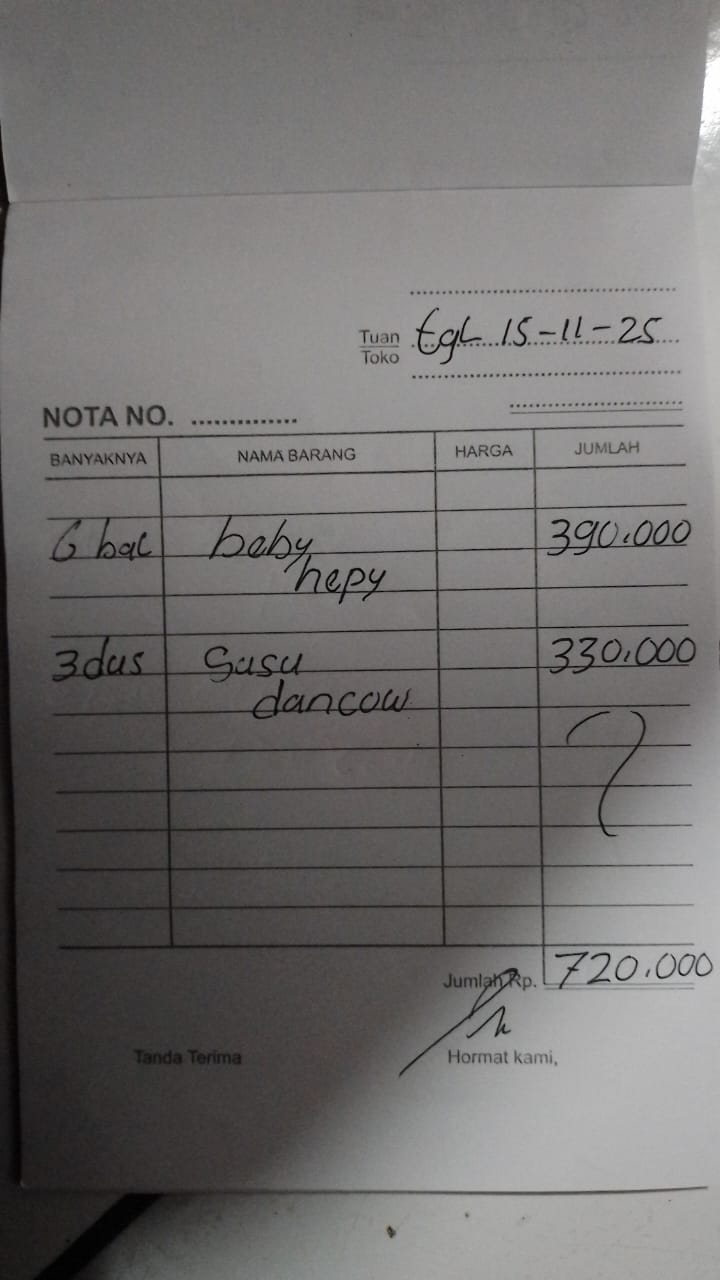 Tuan
Toko
tgl 15-11-25
NOTA NO.
BANYAKNYA NAMA BARANG HARGA JUMLAH
6 bal beby 390.000
hepy
3 dus susu 330.000
dancow
Jumlah Rp. 720.000
Tanda Terima Hormat kami,